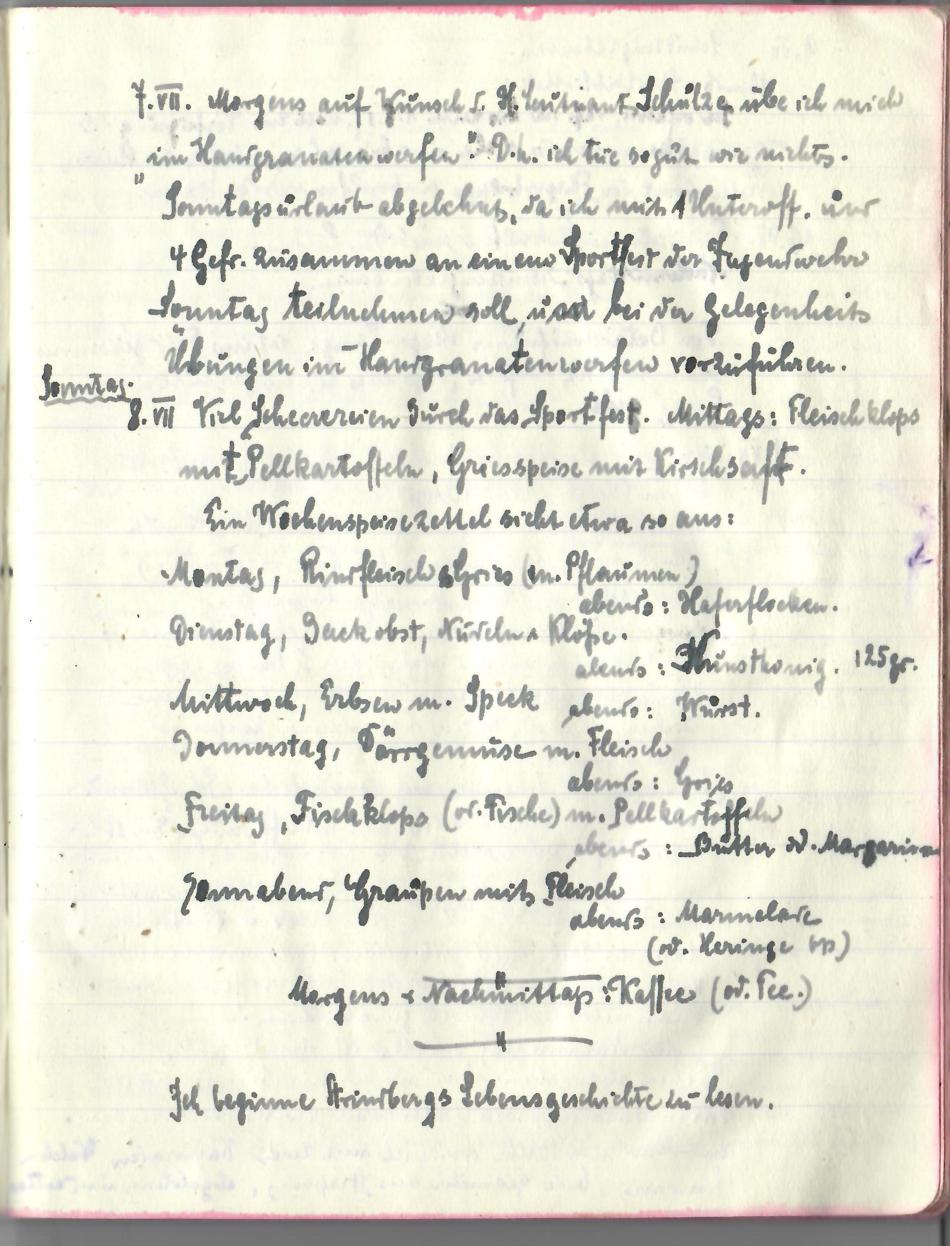 7.VII. Morgens auf Wunsch d. H. Leutnant Schulze übe ich mich
im "Handgranatenwerfen". D.h. ich tue so gut wie nichts.
Sonntagsurlaub abgelehnt, da ich mit 1 Unteroff. und
4 Gefr. zusammen an einem Sportfest der Jugendwehr
Sonntag teilnehmen soll, und bei der Gelegenheit
Übungen im Handgranatenwerfen vorzuführen.
Sonntag.
8.VII Viel Scherereien durch das Sportfest. Mittags: Fleischklops
mit Pellkartoffeln, Griesspeise mit Kirschsaft.
Ein Wochenspeisezettel sieht etwa so aus:
Montag, Rindfleisch & Gries (m. Pflaumen)
abends: Haferflocken.
Dienstag, Backobst, Nudeln & Klöße.
abends: Kunsthonig. 125gr.
Mittwoch, Erbsen m. Speck
abends: Wurst.
Donnerstag, Dörrgemüse m. Fleisch
abends: Gries
Freitag, Fischklops (od. Fische) m. Pellkartoffeln
abends: Butter od. Margarine
Sonnabend, Graupen mit Fleisch
abends: Marmelade
(od. Heringe)
Morgens & Nachmittags: Kaffee (od. Tee.)
Ich beginne Strindbergs Lebensgeschichte zu lesen.